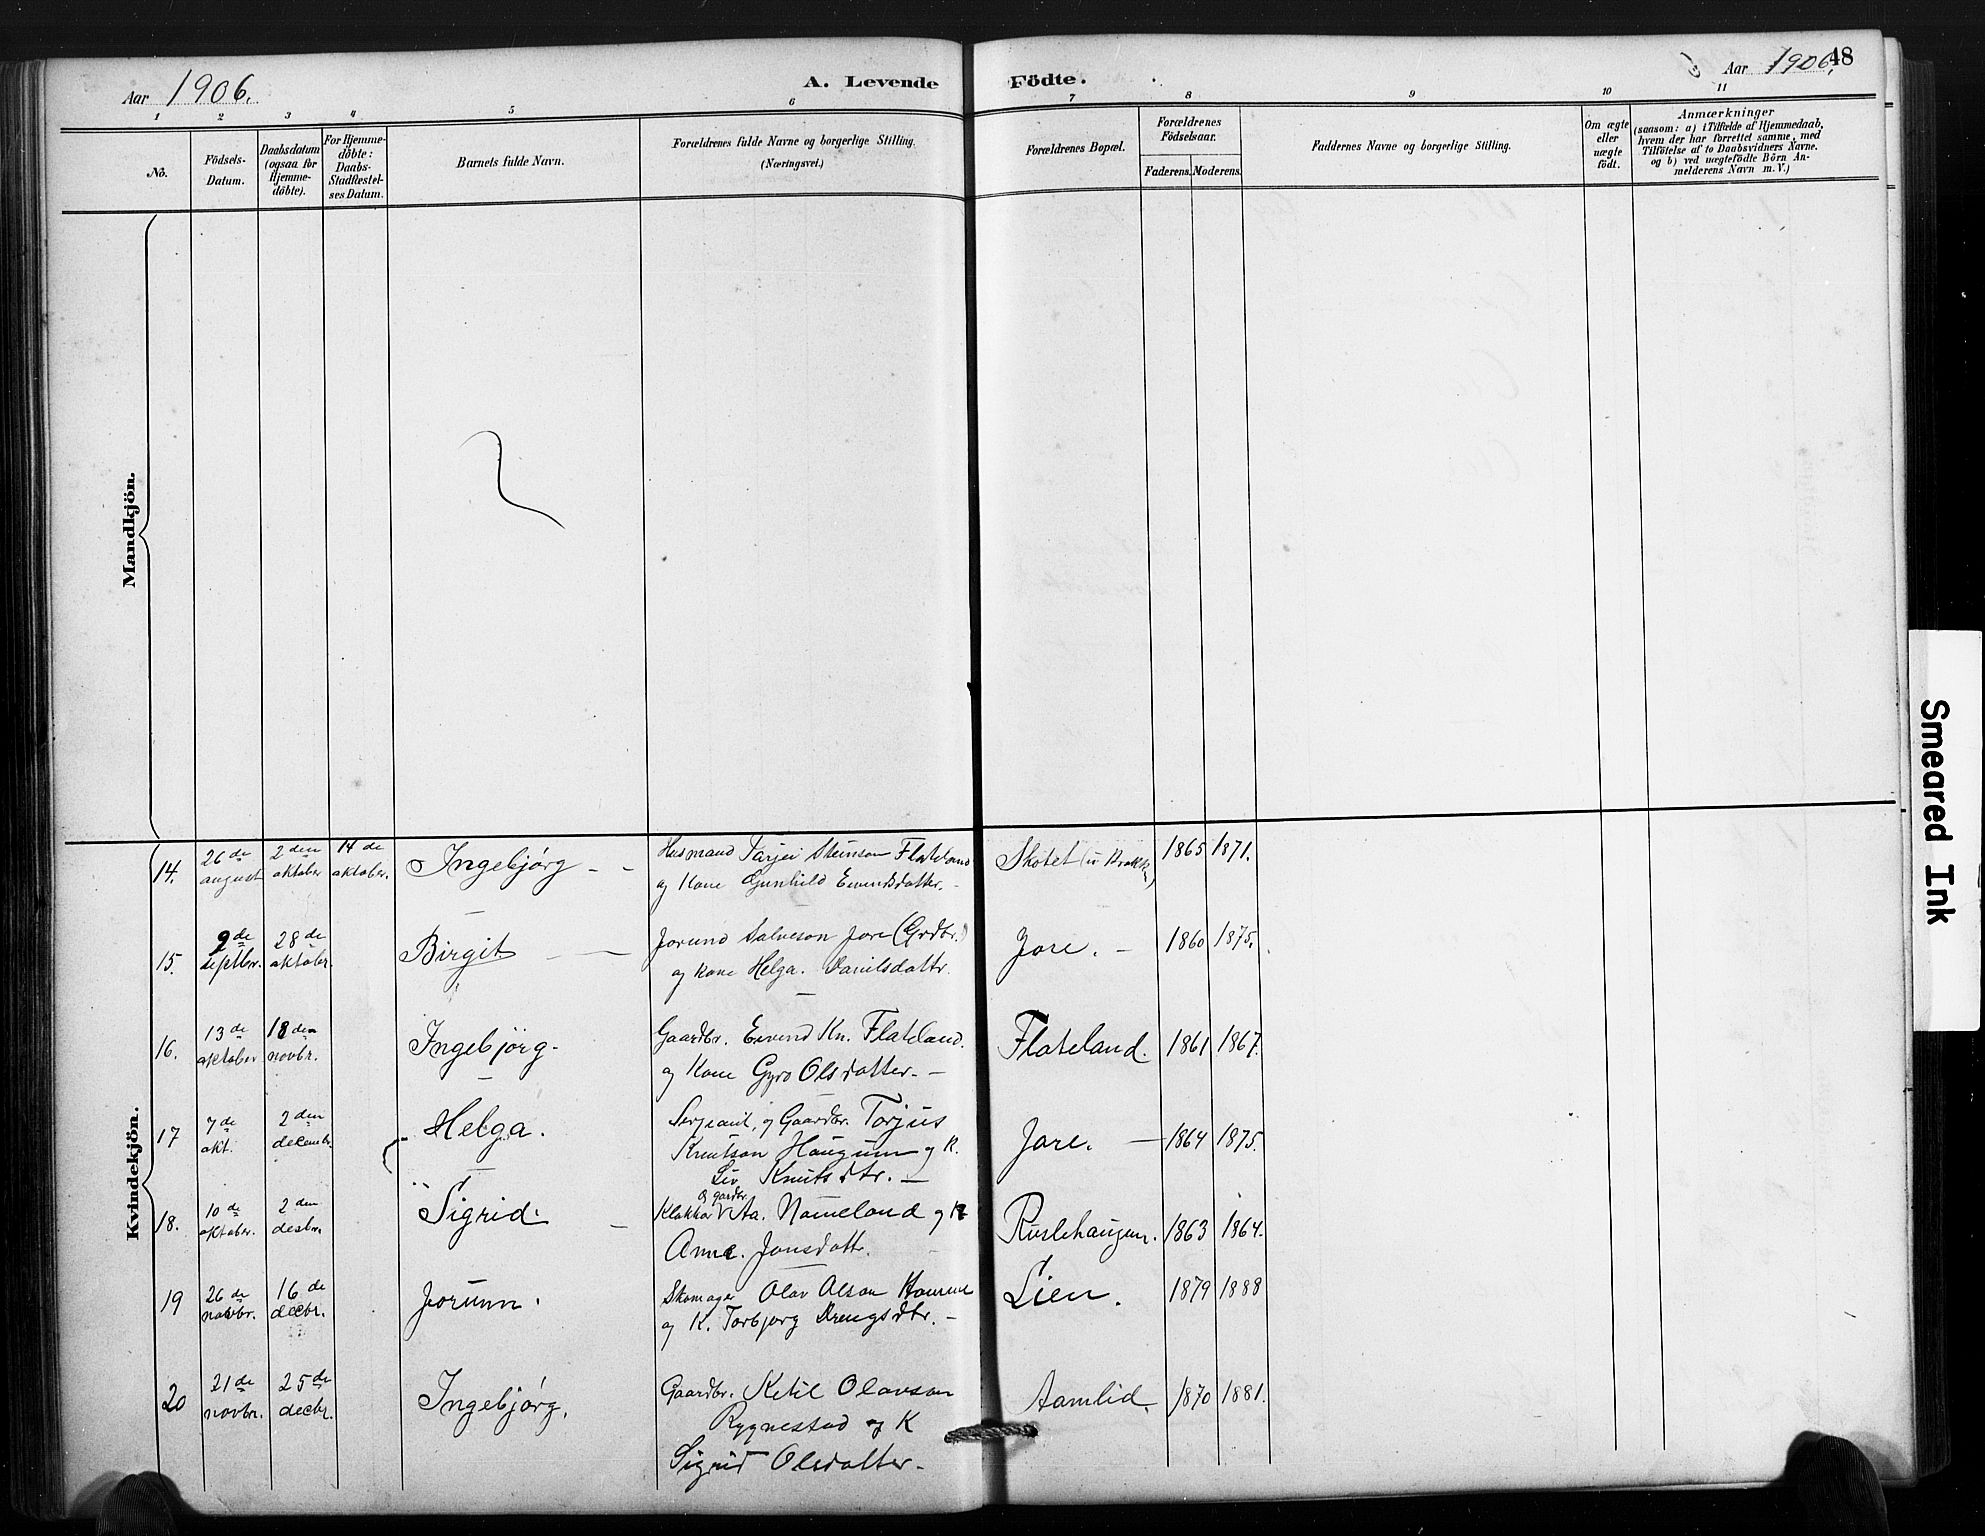 Aar 1906.
A. Levende Födte.
Aar 1906.
48
1 2 3 4 5 6 7 8 9 10 11
No.
Födsels-
Datum.
Daabsdatum
(ogsaa for
Hjemme-
döbte).
For Hjemme-
döbte:
Daabs-
Stadfæstel-
ses Datum.
Barnets fulde Navn.
Forældrenes fulde Navne og borgerlige Stilling.
(Næringsvei.)
Forældrenes Bopæl.
Forældrenes
Födselsaar.
Faderens. Moderens.
Faddernes Navne og borgerlige Stilling.
Om ægte
eller
uægte
födt.
Anmærkninger
(saasom: a) i Tilfælde af Hjemmedaab,
hvem der har forrettet samme, med
Tilföielse af to Daabsvidners Navne.
og b) ved uægtefödte Börn An-
melderens Navn m. V.)
Mandkjön.
Kvindekjön.
14. 26de august 2den oktober 14de oktober. Ingebjörg - -
Husmand Tarjei Steinson Flateland
og Kone Gunhild Eivindsdatter. -
Skotet 1865 1871.
15. 2de septbr. 28de oktobr. Birgit
Jorund Salveson Jore (Grdbr.)
og kone Helga. Danielsdattr.
Jore. - 1860 1875.
16. 13de oktober 18den novbr. Ingebjörg-
Gaardbr. Eivind Kn. Flateland.
og Kone Gyro Olsdatter. -
Flateland. 1861 1867.
17 7de okt. 2den decembr. Helga.
Sergeant, og Gaardbr. Torjus
Knutson Haugum og K.
Liv Knutsdtr. -
Jore. - 1864 1875.
18. 10de oktober. 2den desbr. Sigrid.
og gardbr.
Aa. Nomeland og K
Anne. Jonsdattr.
1863 1864.
19 26de novbr. 16de decbr. Jorunn.
Skomager Olav Olson
og K. Torbjorg Drengsdtr. -
Lien. 1879 1888
20 21de novbr. 25de decbr. Ingebjörg.
Gaardbr. Ketil Olavson
Rygnestad og K
Sigrid Olsdatter. -
Aamlid. 1870 1881.
Smeared Ink